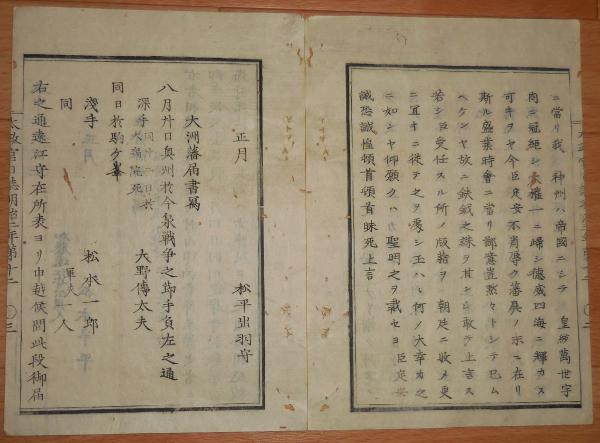 ニ當リ我 神州ハ帝國ニシテ 皇統萬世宇
内ニ冠絶シ大權一ニ歸シ德威四海ニ輝カス
可キヲヤ今臣定安不肖辱ク藩屏ノ末ニ在リ
斯ル盛業時會ニ當リ鄙意豈黙々トシテ已ム
ヘケンヤ故ニ鈇鉞之誅ヲ甘シシ敢テ上言ス
若シ臣受任スル所ノ版籍ヲ 朝廷ニ收メ更
ニ宜キニ從テ之ヲ處シ玉ハヽ何ノ大幸カ之
ニ如シヤ仰願クハ 聖明之ヲ裁セヨ臣定安
誠恐誠惶頓首頓首昧死上言
正月 松平出羽守
大洲藩届書寫
八月廿日奥州於今泉戰爭之節手負左之通
深手 大野傳太夫
同日於駒ケ峯
淺手 松水一郎
同 軍夫 一人
右之通遠江守在所表ヨリ申越候間此段御届
太政官日誌明治二年第十二 〇三